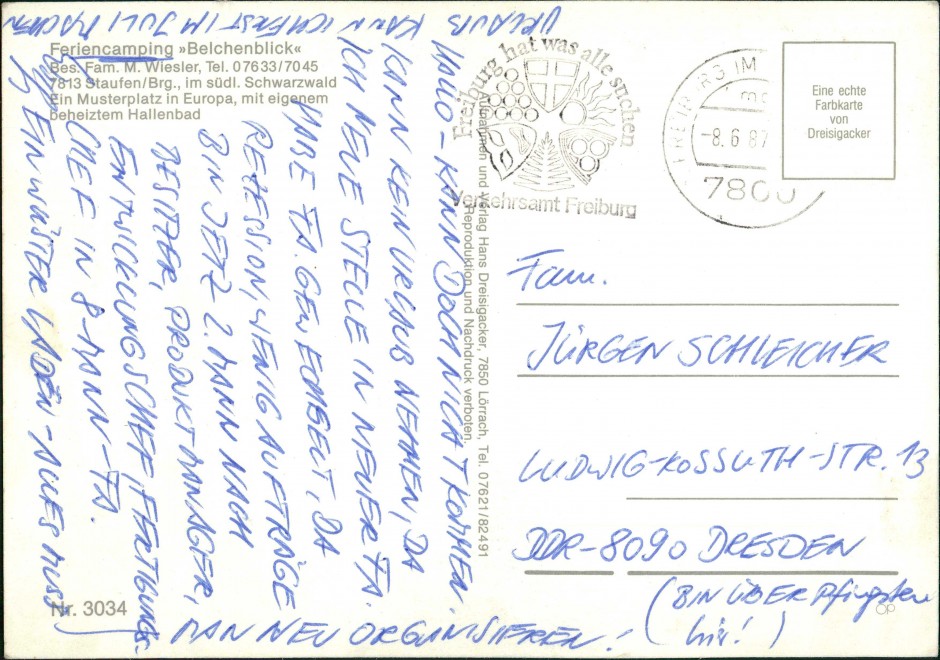 Feriencamping »Belchenblick«
Bes. Fam. M. Wiesler, Tel. 07633/7045
7813 Staufen/Brg., im südl. Schwarzwald
Ein Musterplatz in Europa, mit eigenem
beheiztem Hallenbad
HALLO - KANN DOCH NICHT KOMMEN.
KANN KEIN URLAUB NEHMEN, DA
ICH NEUE STELLE IN NEUER FA.
HABE FA. GEWECHSELT, DA
REZESSION, WENIG AUFTRÄGE
BIN JETZ 2. MANN NACH
BESITZER, PRODUKTMANAGER,
ENTWICKLUNGSCHEF, FERTIGUNGS-
CHEF IN 8-MANN-FA.
EIN WÜSTER LADEN - ALLES MUSS
MAN NEU ORGANISIEREN!
URLAUB KANN ICH ERST IM JULI MACHEN
(BIN ÜBER Pfingsten
hier!)
Nr. 3034
Aufnahmen und Verlag Hans Dreisigacker, 7850 Lörrach, Tel. 07621/82491
Reproduktion und Nachdruck verboten.
Freiburg hat was alle suchen
Verkehrsamt Freiburg
FREIBURG IM
-8.6.87
7800
Eine echte
Farbkarte
von
Dreisigacker
Fam.
JÜRGEN SCHLEICHER
LUDWIG-KOSSUTH-STR. 13
DDR-8090 DRESDEN
ÖP